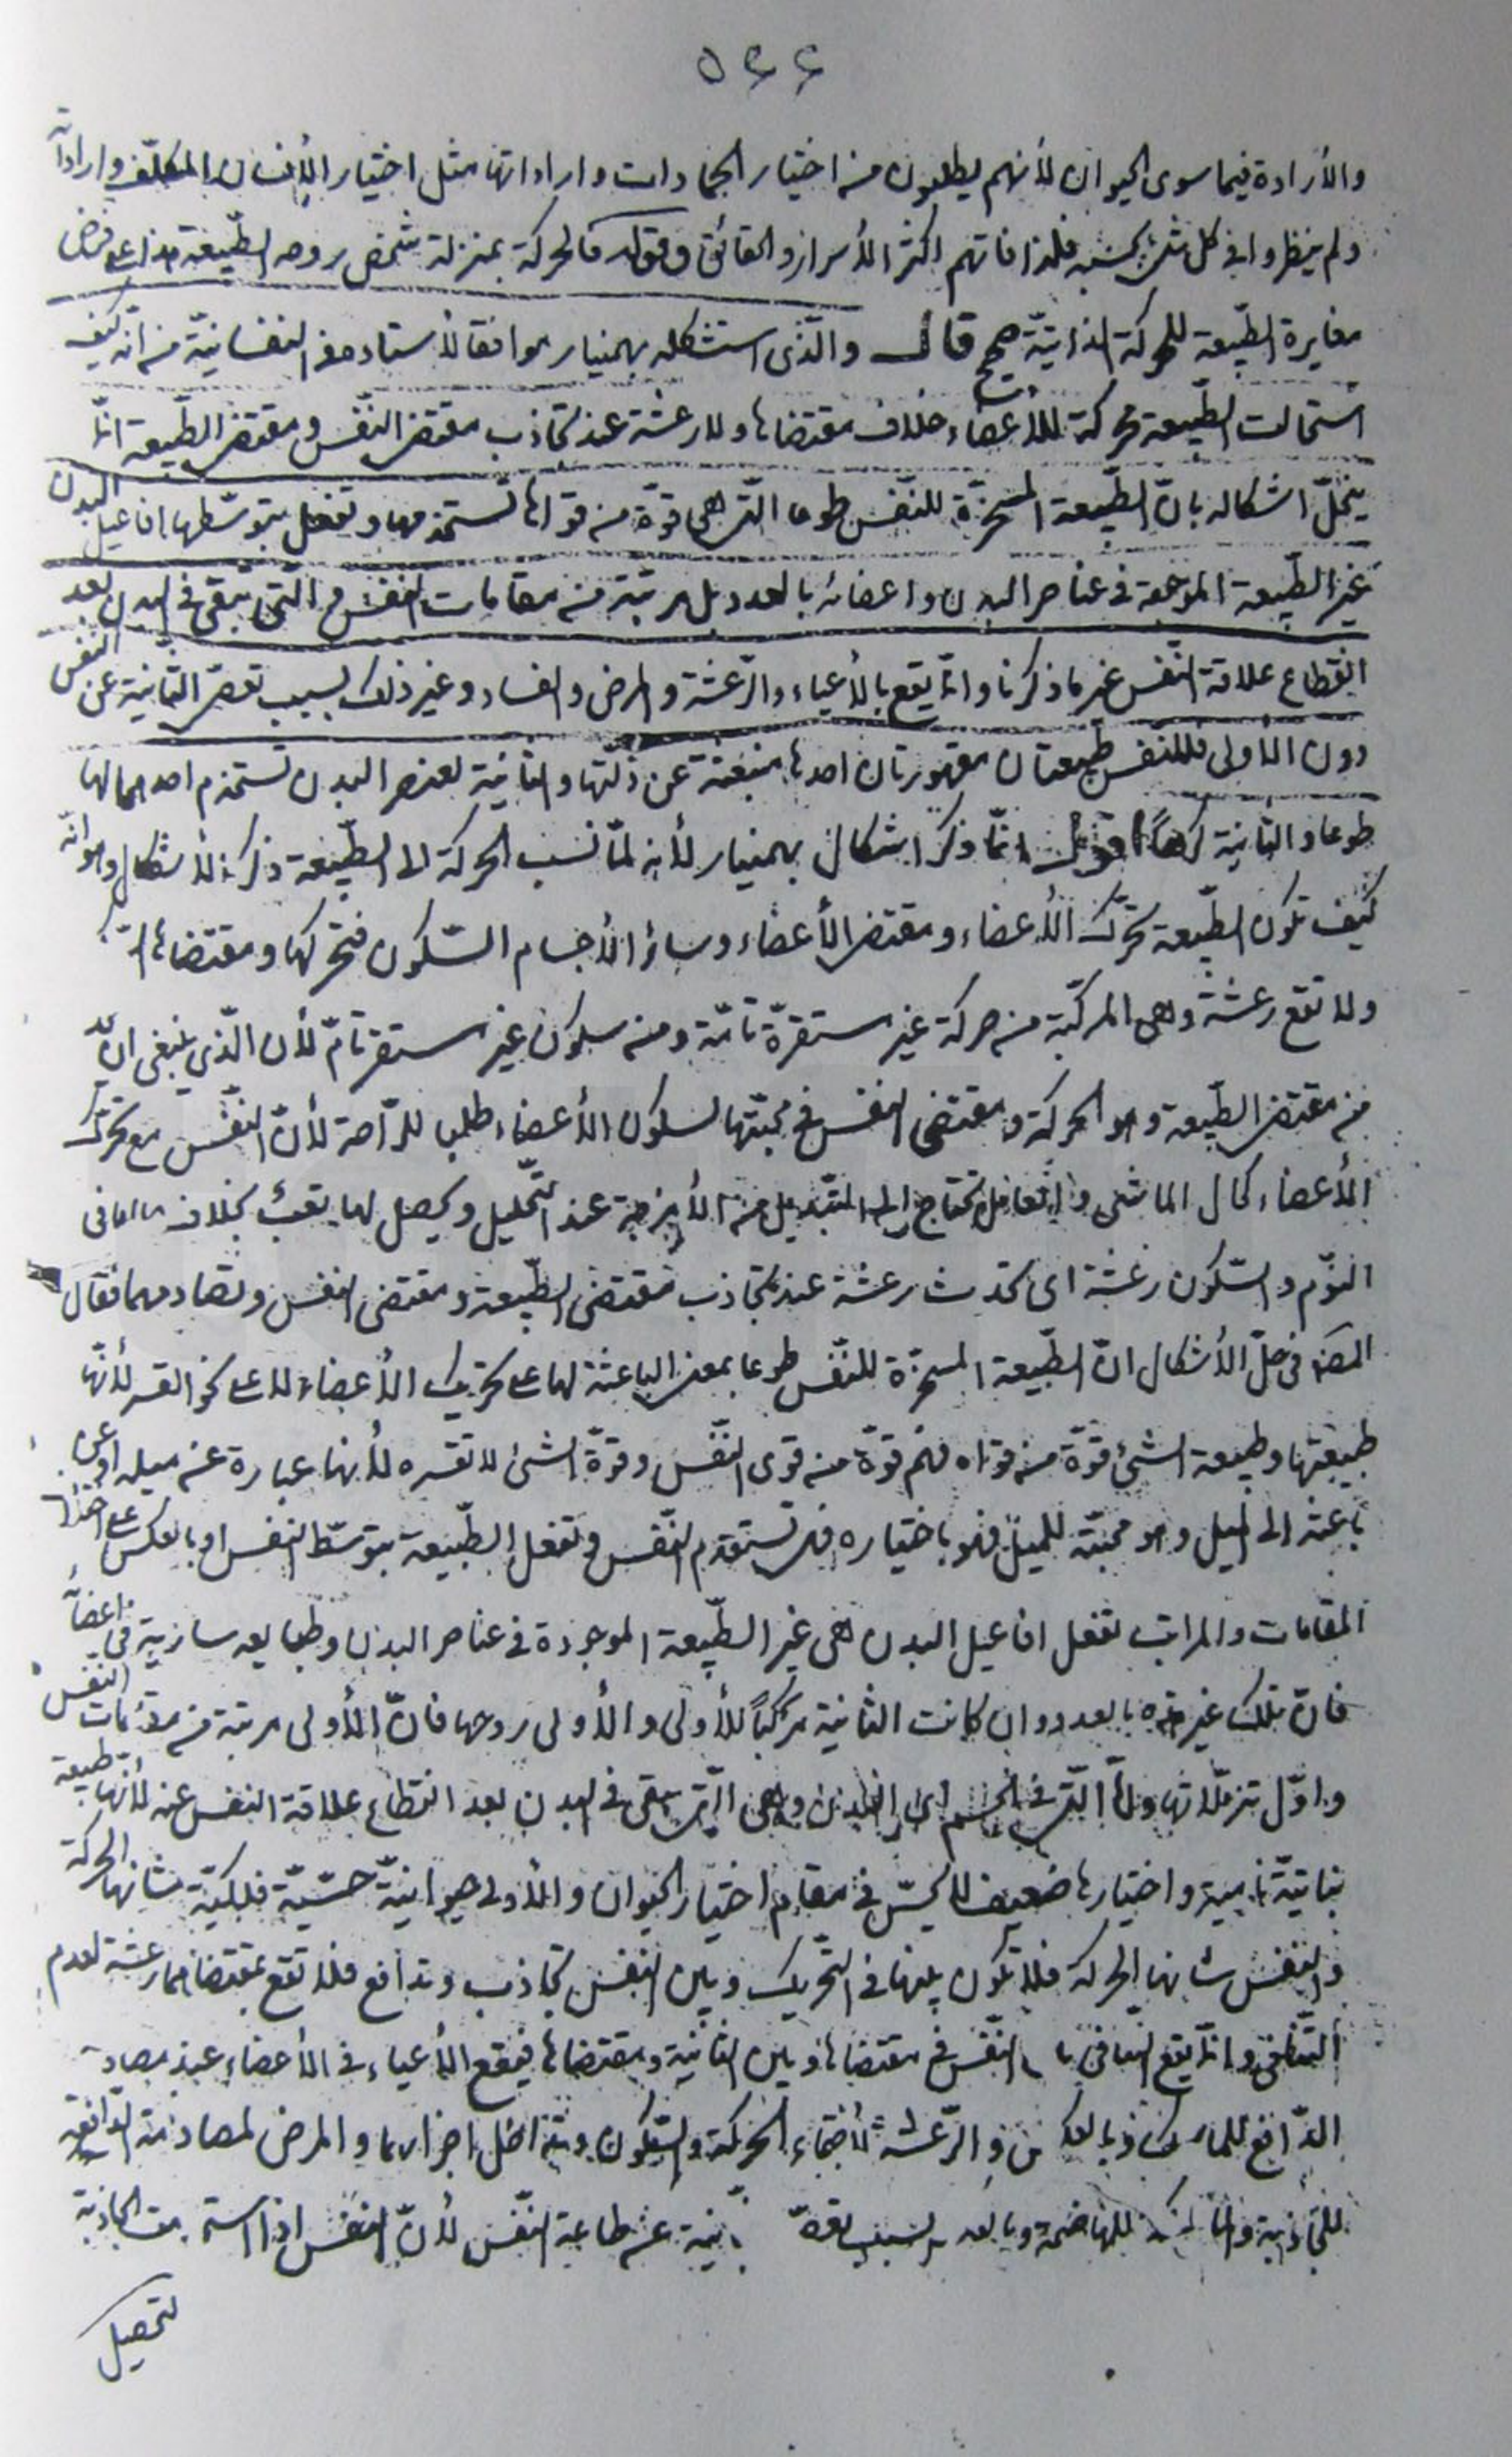 ٥٤٤
والأرادة فيما سوى الحيوان لأنهم يطلبون من اختيار الجمادات واراداتها مثل اختيار الإنسان المكلّف واراداته
ولم ينظروا في كل شئ بحسبه فلذا فاتهم اكثر الأسرار والحقائق وقوله فالحركة بمنزلة شخص روحه الطّبيعة هذا على فرض
مغايرة الطّبيعة للحركة الذاتيّة صحيح قال والّذى استشكله بهمنيار موافقا لأستاده في النفسانيّة من انّه كيف
استحالت الطّبيعة محركة للأعضاء خلاف مقتضاها ولا رعشة عند تجاذب مقتضى النّفس ومقتضى الطّبيعة انّما
ينحلّ اشكاله بانّ الطّبيعة المسخّرة للنّفس طوعا الّتى هي قوّة من قواها تستخدمها وتفعل بتوسّطها افاعيل البدن
غير الطّبيعة الموجودة في عناصر البدن واعضائه بالعدد بل مرتبة من مقامات النفس والّتى تبقى في البدن بعد
انقطاع علاقة النّفس غير ما ذكرنا وانّما يقع بالأعياء والرّعشة والمرض والفساد وغير ذلك بسبب تعصّى الثّانية عن النفس
دون الأولى فللنّفس طبيعتان مقهورتان احدها منبعثة عن ذاتها والثانية لعنصر البدن تستخدم احدهما لها
طوعا والثانية كرهاً اقول انّما ذكر اشكال بهمنيار لأنه لمّا نسب الحركة الى الطّبيعة ذكر الأشكال وهو انّه
كيف تكون الطّبيعة تحرّك الأعضاء ومقتضى الأعضاء وسائر الأجسام السّكون فتحركها ومقتضاها
ولا تقع رعشة وهى المركّبة من حركة غير مستقرّة تامّة ومن سكون غير مستقر تامّ لأن الّذي ينبغى ان
من مقتضى الطّبيعة وهو الحركة ومقتضى النفس في محبّتها لسكون الأعضاء طلبا للرّاحة لأنّ النّفس مع تحرّك
الأعضاء كحال الماشى والعامل تحتاج الى التبديل من الأبخرة عند التّحليل ويحصل لها تعب بخلاف حالها في
النّوم والسّكون رعشة اى تحدث رعشة عند تجاذب مقتضى الطّبيعة ومقتضى النفس وتصادمهما فقال
المصنّف في حلّ الأشكال انّ الطّبيعة المسخّرة للنّفس طوعا بمعنى الباعثة لها على تحريك الأعضاء لا على نحو القسر لأنّها
طبيعتها وطبيعة الشئ قوّة من قواه فهى قوّة من قوى النّفس وقوّة الشئ لا تقسره لأنها عبارة عن ميله او عن
باعثه الى الميل وهو محبّته للميل فهو باختياره فهى تستخدم النّفس وتفعل الطّبيعة بتوسّط النفس او بالعكس على اختلاف
المقامات والمراتب تفعل افاعيل البدن هي غير الطّبيعة الموجودة في عناصر البدن وطبايعه سارية في اعضائه
فانّ تلك غير هذه بالعدد وان كانت الثانية مركباً للأولى والأولى روحها فانّ الأولى مرتبة من مقامات النفس
واوّل تنزّلاتها وأمّا الّتى في الجسم اى البدن وهى الّتى تبقى في البدن بعد انقطاع علاقة النفس عنه لأنها طبيعة
نباتيّة نامية واختيارها ضعيف لا يحسّ في مقام اختيار الحيوان والأولى حيوانيّة حسّيّة فلكيّة شانها الحركة
والنفس شانها الحركة فلا تكون بينها في التّحريك وبين النفس تجاذب وتدافع فلا تقع بمقتضاهما رعشة لعدم
التّنافى وانّما يقع التنافى النّفس في مقتضاها وبين الثانية ومقتضاها فيقع الأعياء في الأعضاء عند
الدّافع وبالعكس والرّعشة لأجتماع الحركة والسّكون وتداخل اجزائهما والمرض لمصادمة الدّافعة
للجاذبة للهاضمة وبالعكس بسبب عن طاعة النّفس لأنّ النفس اذا الجاذبة
لتحصيل